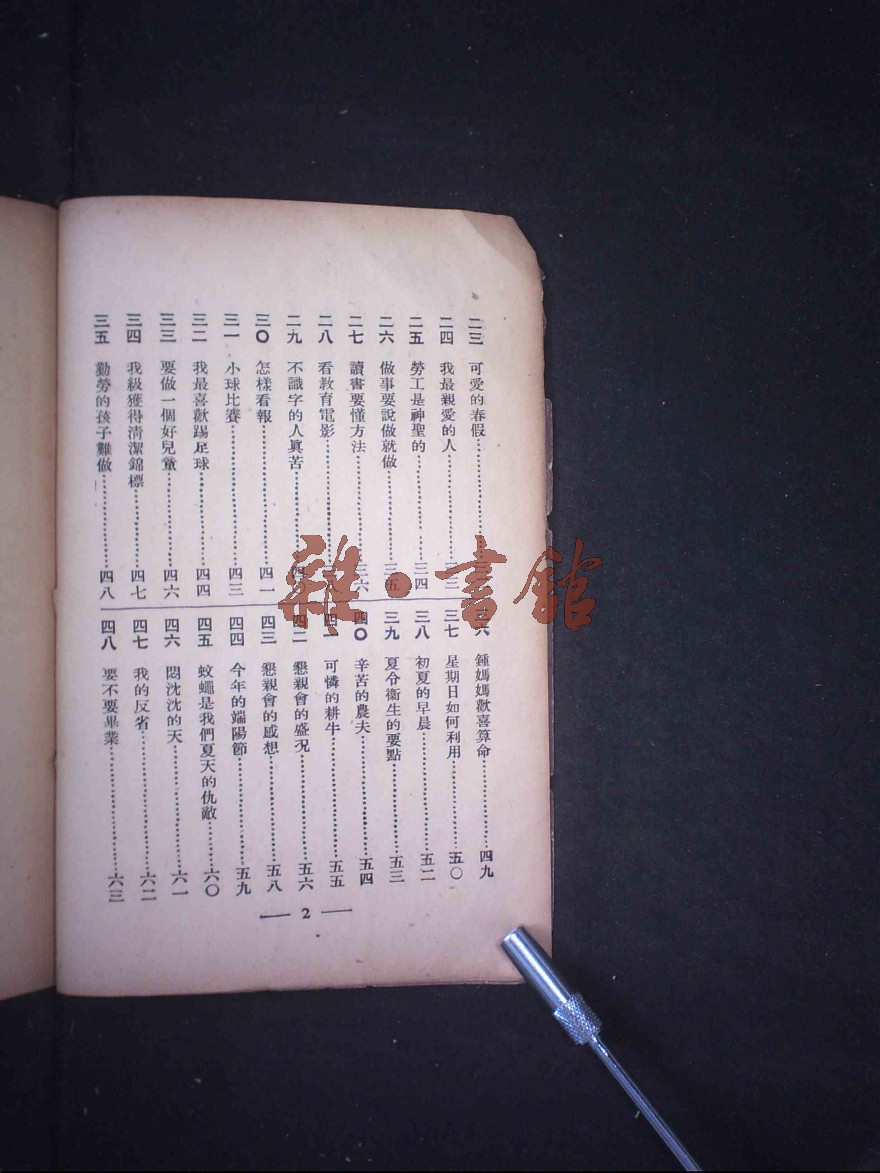 二三 可愛的春假
二四 我最親愛的人
二五 勞工是神聖的 三四
二六 做事要說做就做 三五
二七 讀書要懂方法 三六
二八 看教育電影
二九 不識字的人眞苦 四〇
三〇 怎樣看報 四一
三一 小球比賽 四三
三二 我最喜歡踢足球 四四
三三 要做一個好兒童 四六
三四 我級獲得清潔錦標 四七
三五 勤勞的孩子難做 四八
三六 鍾媽媽歡喜算命 四九
三七 星期日如何利用 五〇
三八 初夏的早晨 五二
三九 夏令衞生的要點 五三
四〇 辛苦的農夫 五四
四一 可憐的耕牛 五五
四二 懇親會的盛況 五六
四三 懇親會的感想 五八
四四 今年的端陽節 五九
四五 蚊蠅是我們夏天的仇敵 六〇
四六 悶沈沈的天 六一
四七 我的反省 六二
四八 要不要畢業 六三
— 2 —
雜·書館